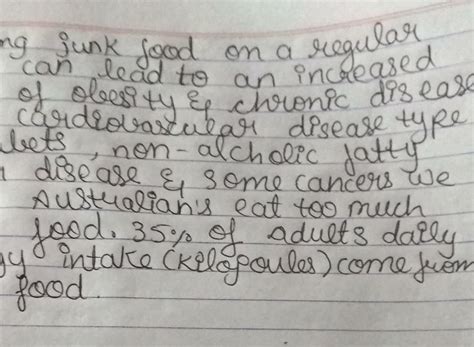 ng junk food on a regular
can lead to an increased
of obesity & chronic disease
cardiovascular disease type
betes, non-alcholic fatty
disease & some cancers we
Australian's eat too much
food. 35% of adults daily
gy intake (kilojoules) come from
food.